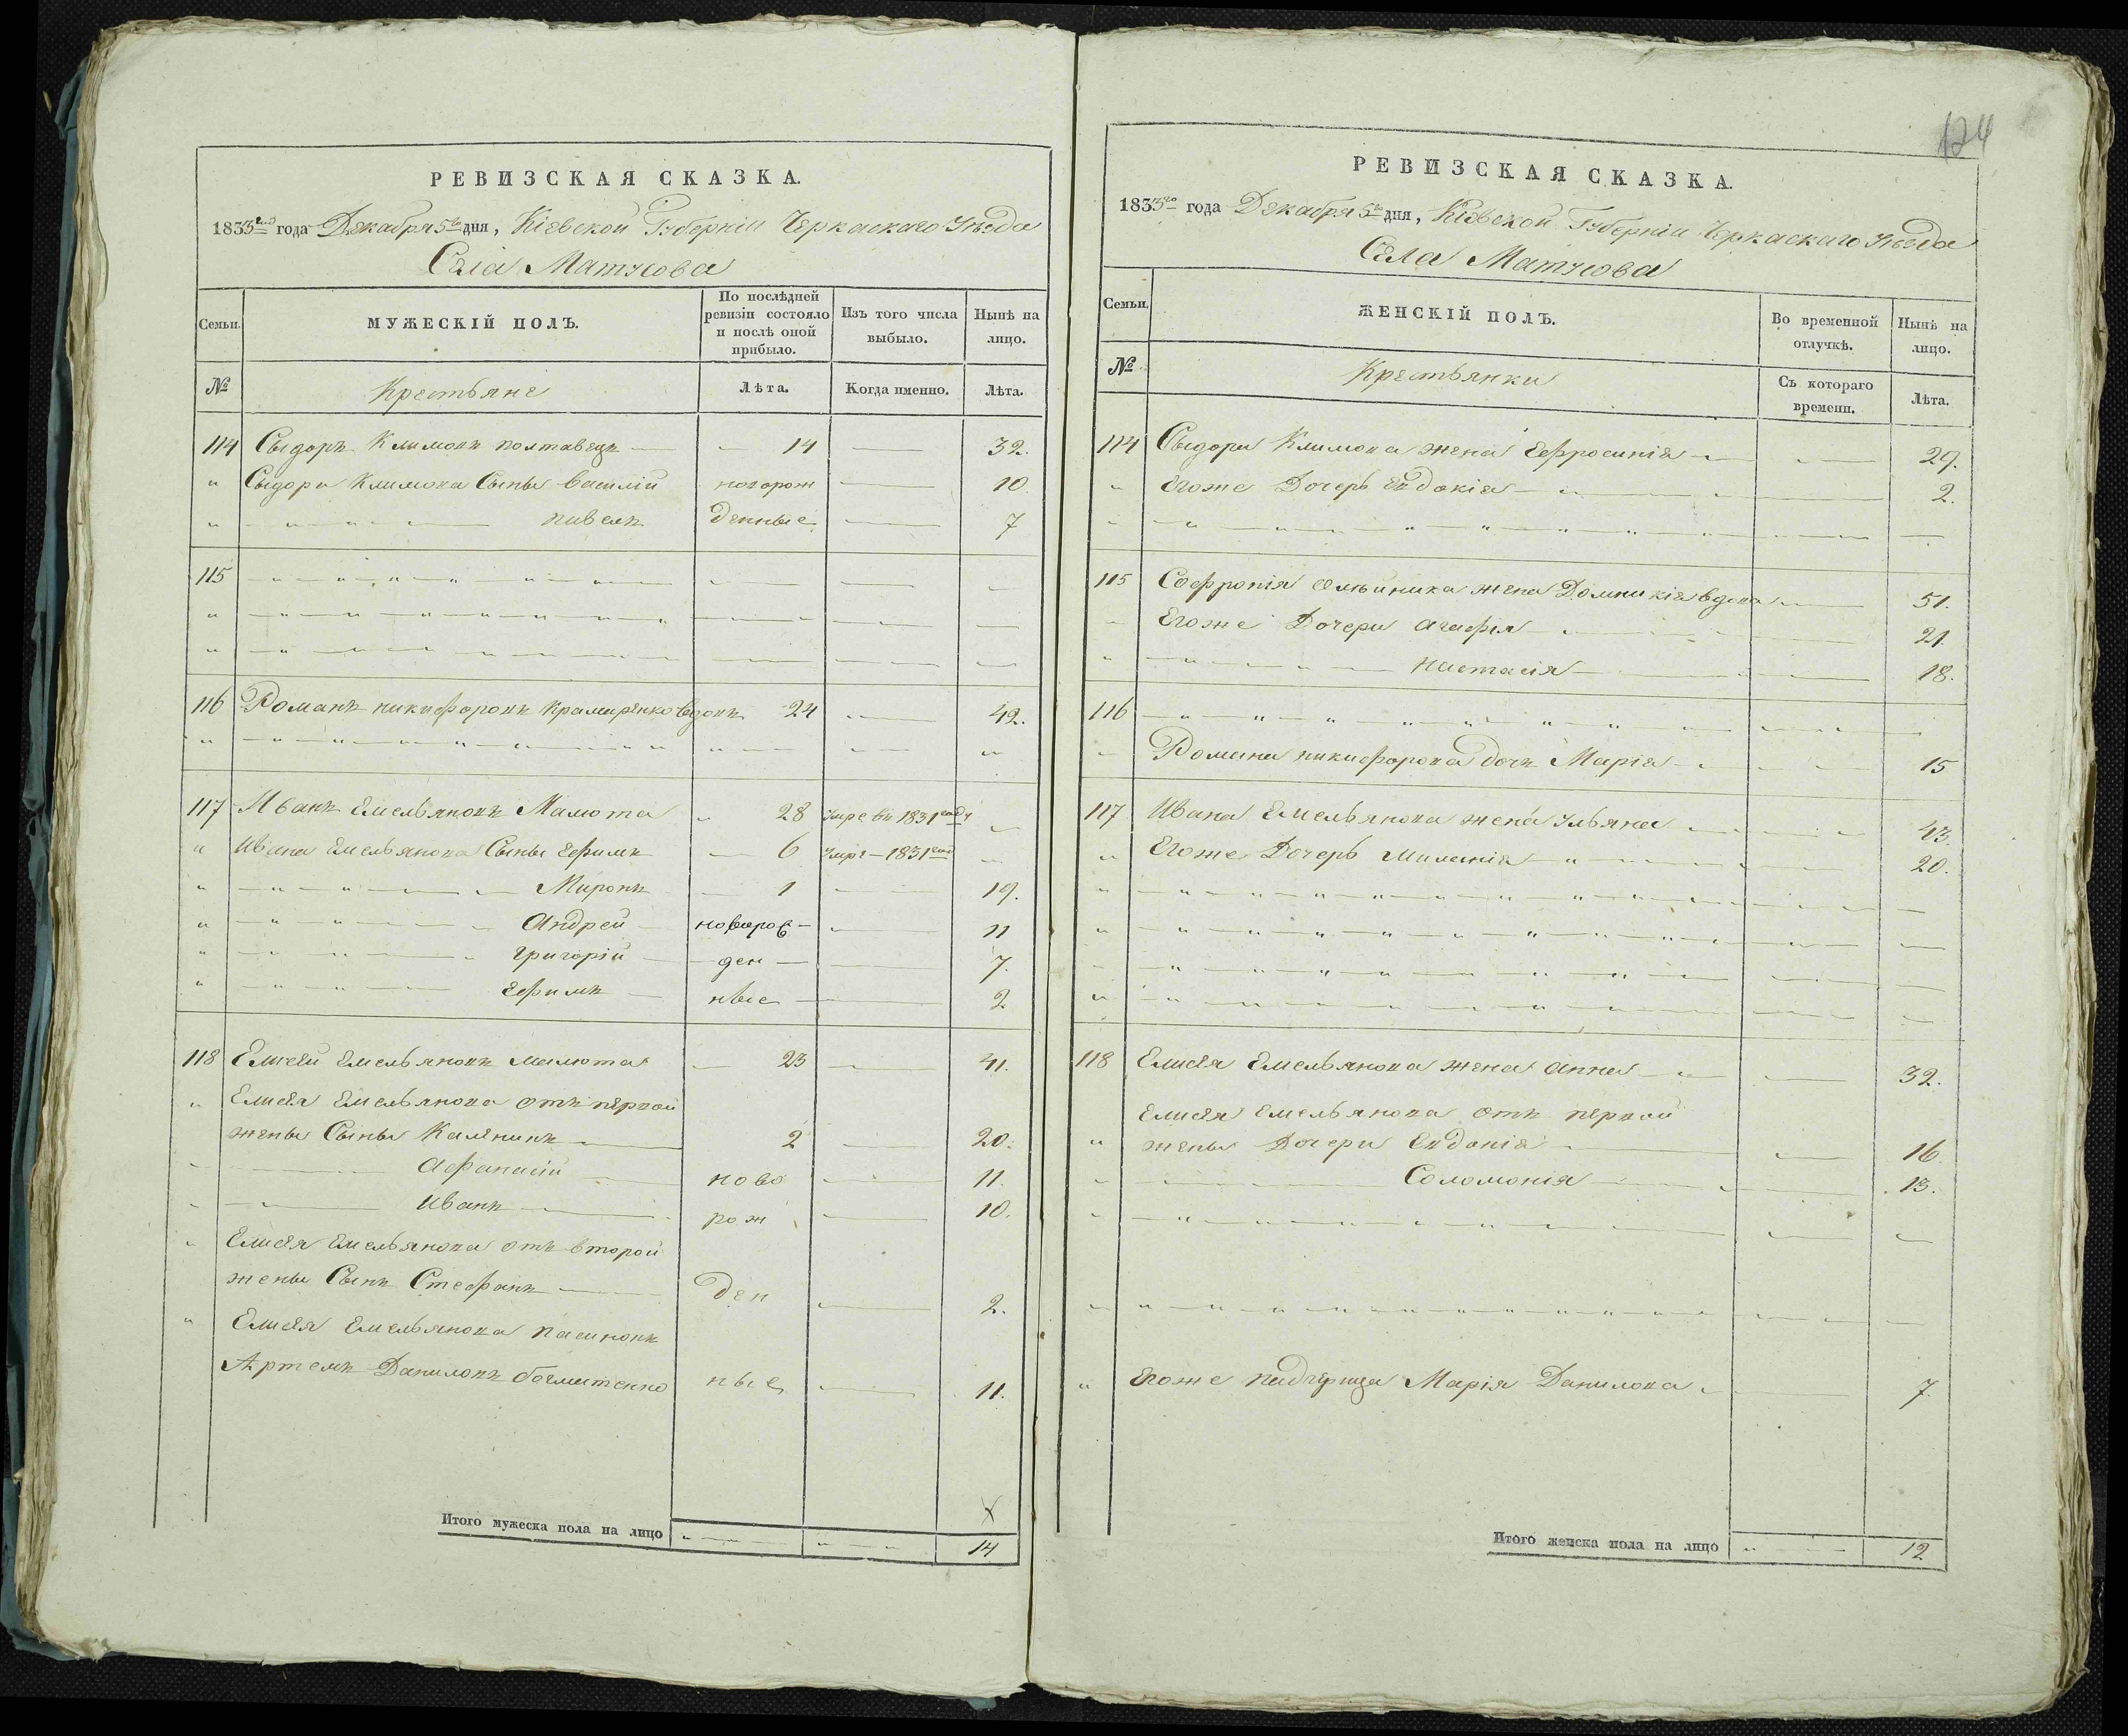 РЕВИЗСКАЯ СКАЗКА.
1833го года Декабря 5го дня, Кіевской Губерніи Черкаскаго Уѣзда
Села Матусова
Семьи.
МУЖЕСКІЙ ПОЛЪ.
По послѣдней ревизіи состояло и послѣ оной прибыло.
Изъ того числа выбыло.
Нынѣ на лицо.
№
Крестьяне
Лѣта.
Когда именно.
Лѣта.
114 Сыдоръ Климовъ полтавецъ 14 32.
Сыдора Климова Сыны василій новорож 10
павелъ денные 7
115
116 Романъ никифоровъ Крамаренко вдовъ 24 42.
117 Иванъ Емельяновъ Малюта 28 Умре въ 1831 году
Ивана Емельянова Сыны Ефимъ 6 Умре 1831 год
Миронъ 1 19.
Андрей новорож 11
григорій ден 7.
Ефимъ ные 2
118 Елисей Емельяновъ малюта 23 41.
Елисея Емельянова отъ первой
жены Сыны Каленикъ 2 20.
Афанасій ново 11.
Иванъ рож 10.
Елисея Емельянова отъ второй
жены Сынъ Стефанъ ден 2.
Елисея Емельянова пасинокъ
Артемъ Даниловъ ные 11.
Итого мужеска пола на лицо 14
124
РЕВИЗСКАЯ СКАЗКА.
1833го года Декабря 5го дня, Кіевской Губерніи Черкаскаго Уѣзда
Села Матусова
Семьи.
ЖЕНСКІЙ ПОЛЪ.
Во временной отлучкѣ.
Нынѣ на лицо.
№
Крестьянки
Съ котораго времени.
Лѣта.
114 Сыдора Климова жена Ефросинія 29.
Егоже Дочерь Евдокія 2.
115 Софронія Олѣйника жена Домникія вдова 51.
Егоже Дочери агафія 21.
настасія 18.
116
Романа никифорова дочъ Марія 15
117 Ивана Емельянова жена ульяна 43.
Егоже Дочерь Миланія 20.
118 Елисея Емельянова жена анна 32.
Елисея Емельянова отъ первой
жены Дочери Евдокія 16.
Соломонія 13.
Егоже падчерица Марія Данилова 7.
Итого женска пола на лицо 12